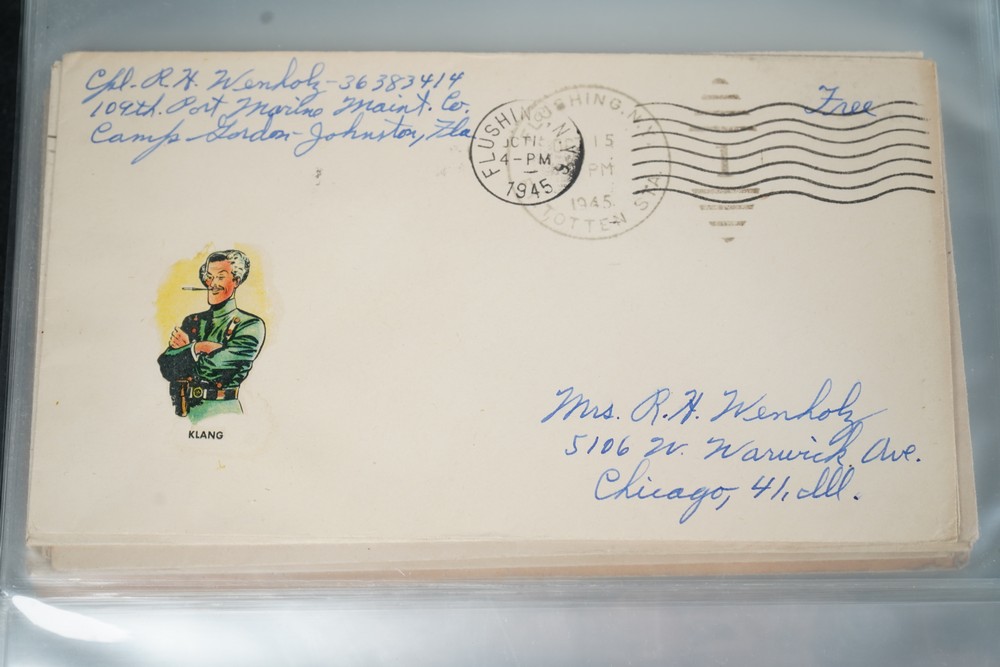 Cpl. R.H. Wenholz - 36383414
109th. Port Marine Maint. Co.
Camp Gordon Johnston, Fla
FLUSHING, N.Y.
4-PM
1945
FLUSHING, N.Y.
15
PM
1945
TOTTEN STA.
1
Free
KLANG
Mrs. R.H. Wenholz
5106 W. Warwick Ave.
Chicago, 41, Ill.